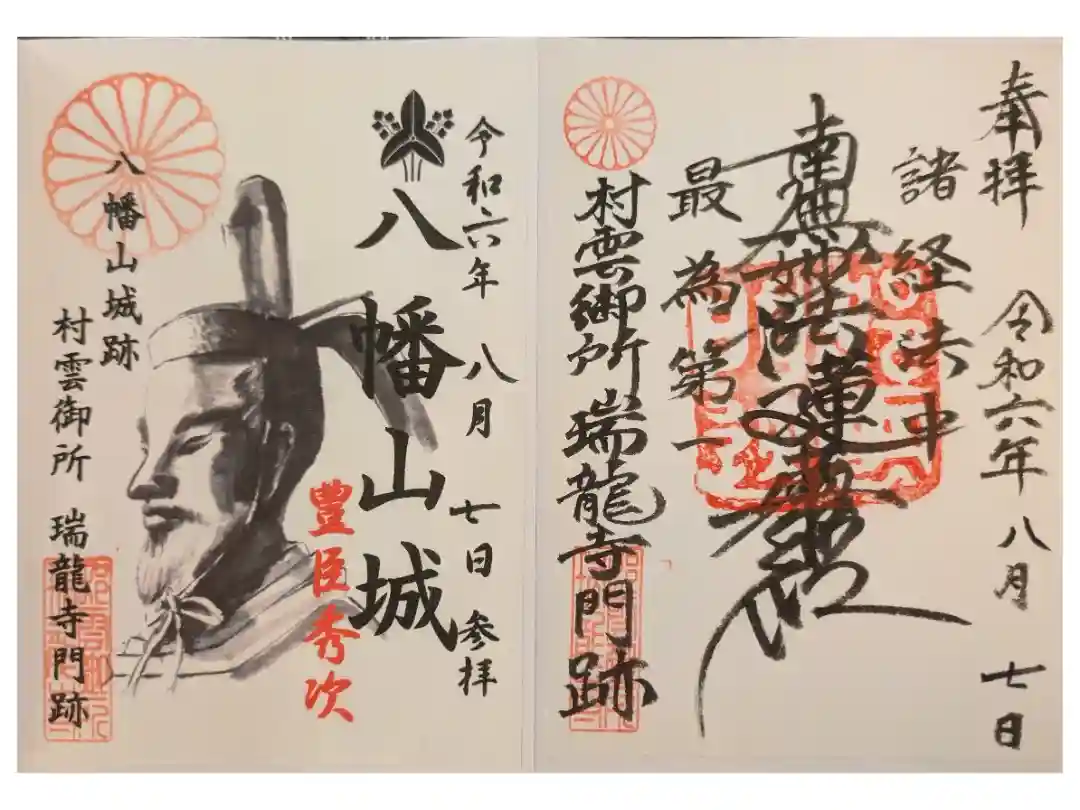 奉拝 令和六年 八月 七日
諸経法中
南無妙法蓮華経
最為第一
村雲御所 瑞龍寺門跡
令和六年 八月 七日 参拝
八幡山城
豊臣秀次
八幡山城跡
村雲御所 瑞龍寺門跡